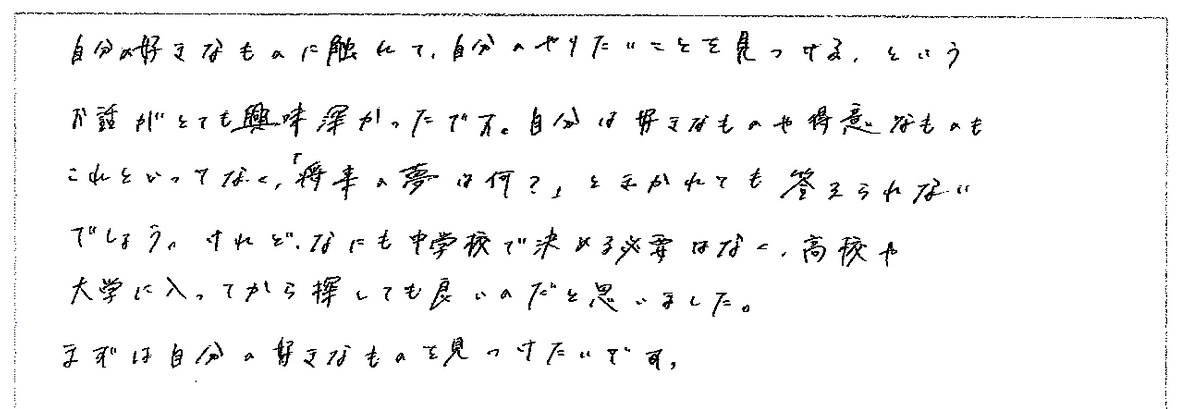 自分の好きなものに触れて、自分のやりたいことを見つける、という
お話がとても興味深かったです。自分は好きなものや得意なものも
これといってなく、「将来の夢は何?」ときかれても答えられない
でしょう。けれど、なにも中学校で決める必要はなく、高校や
大学に入ってから探しても良いのだと思いました。
まずは自分の好きなものを見つけたいです。